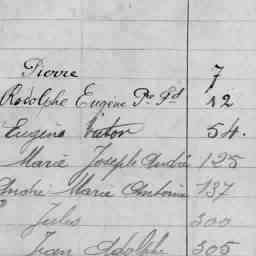 Pierre 7
Rodolphe Eugène Pre Fd 12
Eugène Victor 54.
Marie Joseph André 125
André Marie Antoine 137
Jules 300
Jean Adolphe 305